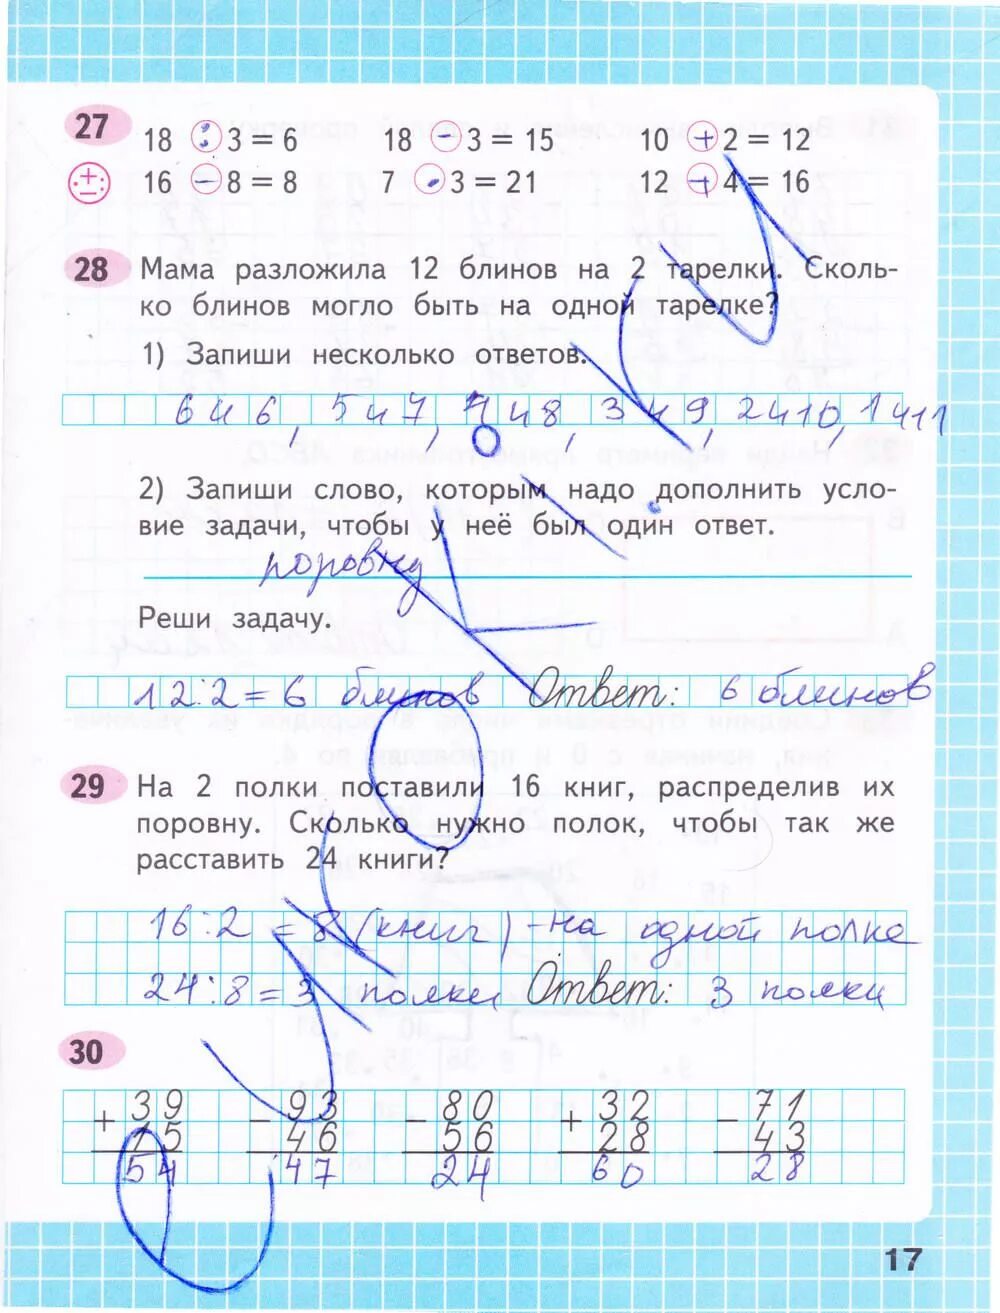 27
18 : 3 = 6 18 − 3 = 15 10 + 2 = 12
16 − 8 = 8 7 · 3 = 21 12 + 4 = 16
28 Мама разложила 12 блинов на 2 тарелки. Сколь-
ко блинов могло быть на одной тарелке?
1) Запиши несколько ответов.
6 и 6, 5 и 7, 4 и 8, 3 и 9, 2 и 10, 1 и 11
2) Запиши слово, которым надо дополнить усло-
вие задачи, чтобы у неё был один ответ.
поровну
Реши задачу.
12:2=6 блинов Ответ: 6 блинов
29 На 2 полки поставили 16 книг, распределив их
поровну. Сколько нужно полок, чтобы так же
расставить 24 книги?
16:2 = 8 (книг) - на одной полке
24:8=3 полки, Ответ: 3 полки
30
+ 39 − 93 − 80 + 32 − 71
15 46 56 28 43
54 47 24 60 28
17